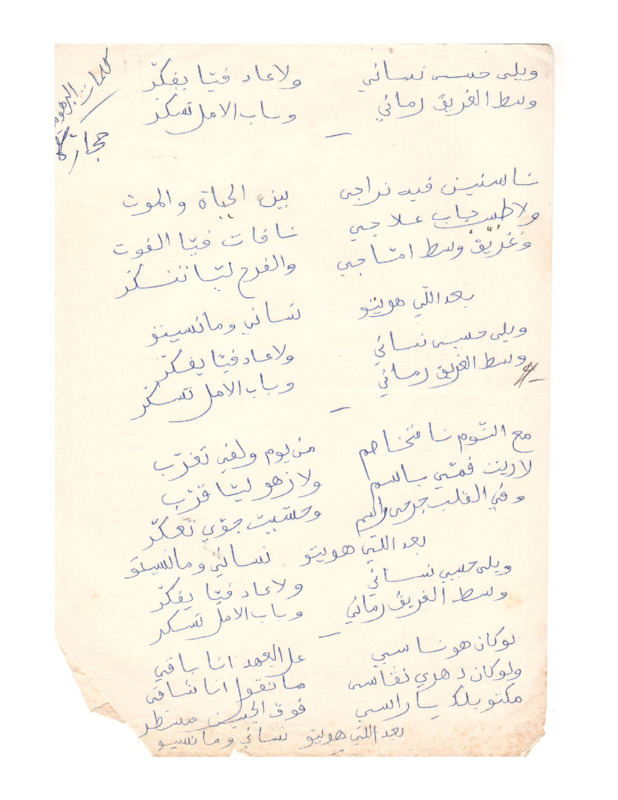 كلمات البرهومي
حجار
ويلى حبيبى نسانى ولاعاد فيّا يفكّر
وسط الغريق رمانى وباب الامل تسكر
ناسنين فيه نراجى بين الحياة والموت
ولاطب جاب علاجى نافات فيّا الفوت
وغرّيق وسط امّاجى والفرح ليّا تنكّر
بعد اللّي هويتو نسانى ومانسيتو
ويلى حبيبى نسانى ولاعاد فيّا يفكّر
وسط الغريق رمانى وباب الامل تسكّر
مع النّوم نا متخاصم من يوم ولفى تغرّب
لاريت فمّى باسم ولازهو ليّا قرّب
وفي القلب جرحى راسم وحسّيت جوّي تعكّر
بعد اللّي هويتو نسانى ومانسيتو
ويلى حبيبى نسانى ولاعاد فيّا يفكّر
وسط الغريق رمانى وباب الامل تسكر
لوكان هو ناسى عل العهد انا باقى
ولوكان دهرى نفاسى مانقول انا شاقى
مكتوبلك ياراسى فوق الجبين مسطّر
بعد اللّي هويتو نسانى ومانسيتو